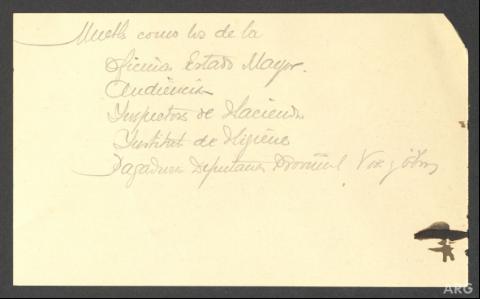 Mueble como los de la
Oficina Estado Mayor.
Audiencia
Inspectores de Hacienda
Institut de Higiene
Pagaduria Diputacion Provincial
ARG